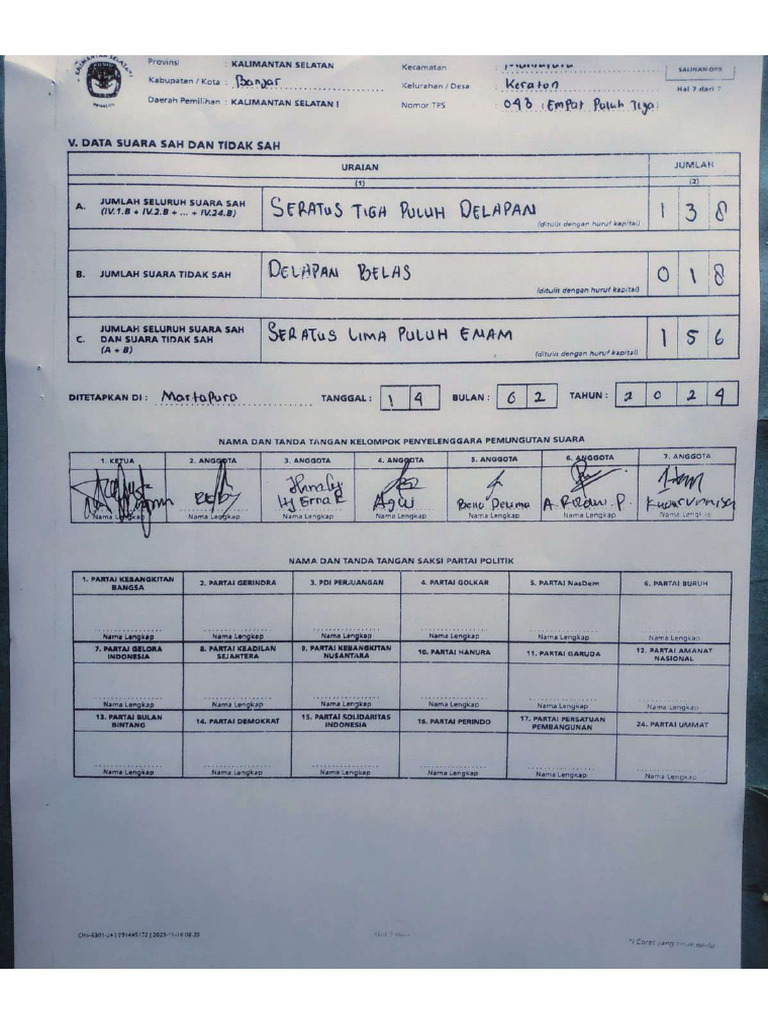 Provinsi : KALIMANTAN SELATAN
Kabupaten / Kota : Banjar
Daerah Pemilihan : KALIMANTAN SELATAN I
Kecamatan
Kelurahan / Desa : Keraton
Nomor TPS : 043 (Empat Puluh Tiga)
SALINAN-DPR
Hal 7 dari 7
V. DATA SUARA SAH DAN TIDAK SAH
URAIAN JUMLAH
(1) (2)
A. JUMLAH SELURUH SUARA SAH (IV.1.B + IV.2.B + ... + IV.24.B) SERATUS TIGA PULUH DELAPAN (ditulis dengan huruf kapital) 1 3 8
B. JUMLAH SUARA TIDAK SAH DELAPAN BELAS (ditulis dengan huruf kapital) 0 1 8
C. JUMLAH SELURUH SUARA SAH DAN SUARA TIDAK SAH (A + B) SERATUS LIMA PULUH ENAM (ditulis dengan huruf kapital) 1 5 6
DITETAPKAN DI : Martapura TANGGAL : 14 BULAN : 02 TAHUN : 2024
NAMA DAN TANDA TANGAN KELOMPOK PENYELENGGARA PEMUNGUTAN SUARA
1. KETUA 2. ANGGOTA 3. ANGGOTA 4. ANGGOTA 5. ANGGOTA 6. ANGGOTA 7. ANGGOTA
Hj Erna R Agus A. Rizani. P.
Nama Lengkap Nama Lengkap Nama Lengkap Nama Lengkap Nama Lengkap Nama Lengkap Nama Lengkap
NAMA DAN TANDA TANGAN SAKSI PARTAI POLITIK
1. PARTAI KEBANGKITAN BANGSA 2. PARTAI GERINDRA 3. PDI PERJUANGAN 4. PARTAI GOLKAR 5. PARTAI NasDem 6. PARTAI BURUH
Nama Lengkap Nama Lengkap Nama Lengkap Nama Lengkap Nama Lengkap Nama Lengkap
7. PARTAI GELORA INDONESIA 8. PARTAI KEADILAN SEJAHTERA 9. PARTAI KEBANGKITAN NUSANTARA 10. PARTAI HANURA 11. PARTAI GARUDA 12. PARTAI AMANAT NASIONAL
Nama Lengkap Nama Lengkap Nama Lengkap Nama Lengkap Nama Lengkap Nama Lengkap
13. PARTAI BULAN BINTANG 14. PARTAI DEMOKRAT 15. PARTAI SOLIDARITAS INDONESIA 16. PARTAI PERINDO 17. PARTAI PERSATUAN PEMBANGUNAN 24. PARTAI UMMAT
Nama Lengkap Nama Lengkap Nama Lengkap Nama Lengkap Nama Lengkap Nama Lengkap
*) Coret yang